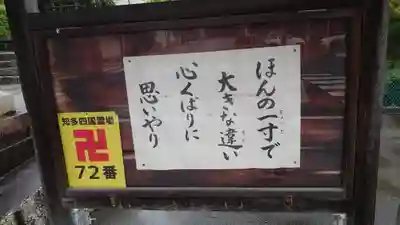 ほんの一寸で
大きな違い
心くばりに
思いやり
知多四国霊場
卍
72番